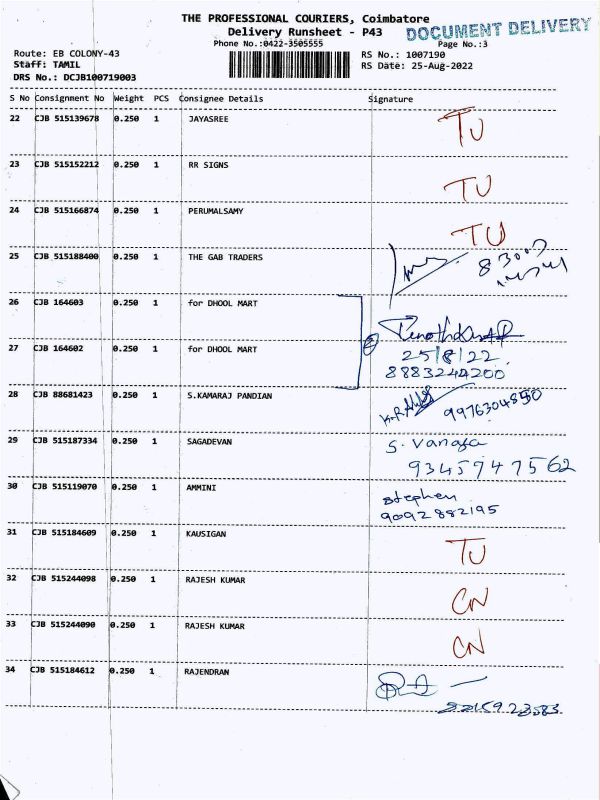 THE PROFESSIONAL COURIERS, Coimbatore
DOCUMENT DELIVERY
Delivery Runsheet - P43
Phone No.:0422-3505555
Page No.:3
Route: EB COLONY-43
RS No.: 1007190
Staff: TAMIL
RS Date: 25-Aug-2022
DRS No.: DCJB100719003
S No Consignment No Weight PCS Consignee Details Signature
22 CJB 515139678 0.250 1 JAYASREE TU
23 CJB 515152212 0.250 1 RR SIGNS TU
24 CJB 515166874 0.250 1 PERUMALSAMY TU
25 CJB 515188400 0.250 1 THE GAB TRADERS
26 CJB 164603 0.250 1 for DHOOL MART
27 CJB 164602 0.250 1 for DHOOL MART
25/8/22.
8883244200
28 CJB 88681423 0.250 1 S.KAMARAJ PANDIAN 9976304850
29 CJB 515187334 0.250 1 SAGADEVAN S. Vanaja
9345747562
30 CJB 515119070 0.250 1 AMMINI Stephen
9092882195
31 CJB 515184609 0.250 1 KAUSIGAN TU
32 CJB 515244098 0.250 1 RAJESH KUMAR CN
33 CJB 515244090 0.250 1 RAJESH KUMAR CN
34 CJB 515184612 0.250 1 RAJENDRAN